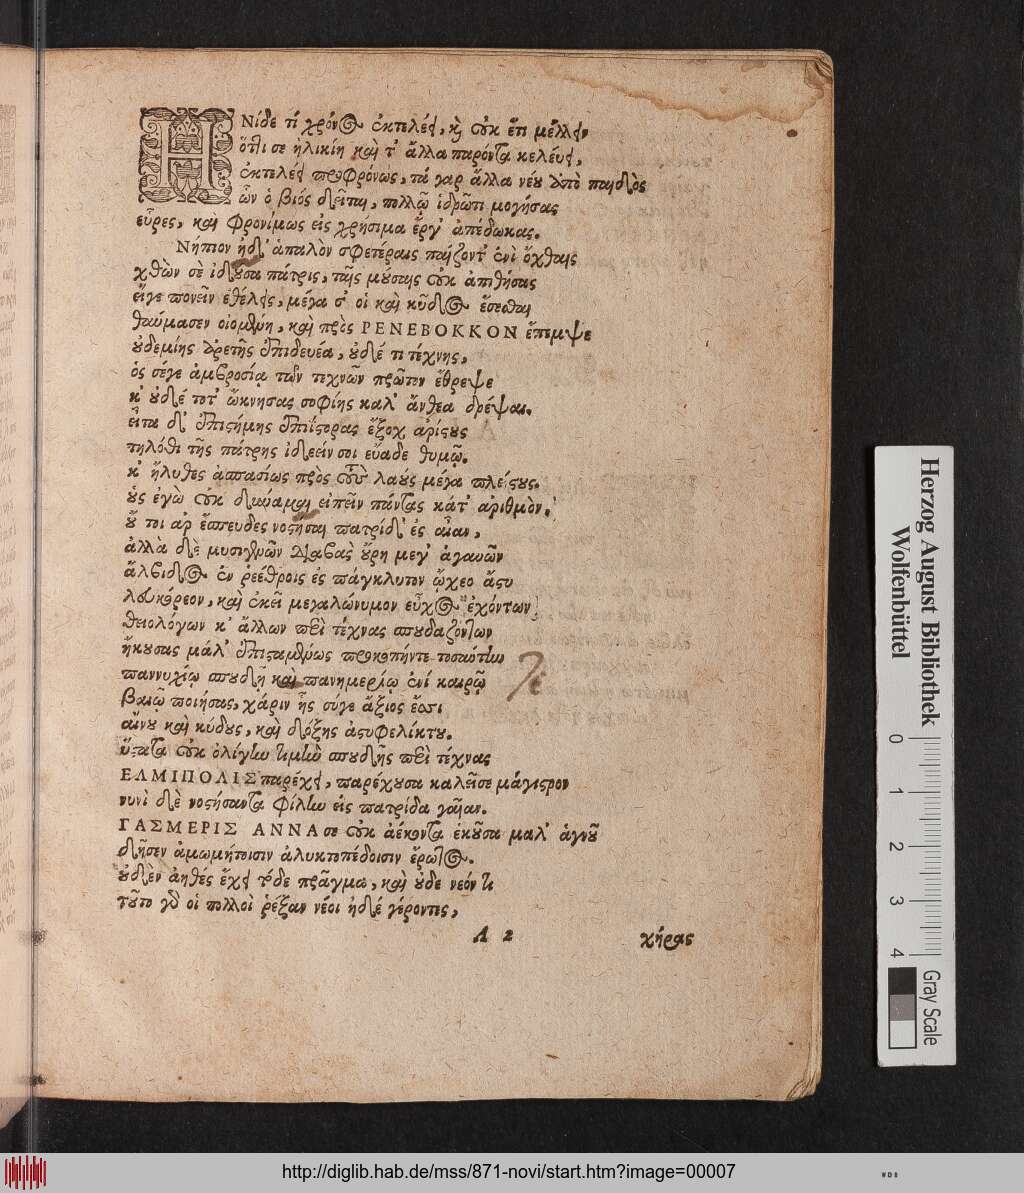 ΗΝίδε τί χρόνος ἐκτελέει, καὶ οὐκ ἔτι μέλλειν
ὅτ̓τι σε ἡλικίη καὶ τ' ἄλλα παρόντα κελεύει,
ἐκτελέει προφρόνως, τὰ γὰρ ἄλλα νέου ἀπὸ παιδὸς
ὧν ὁ βιός δεῖται, πολλῷ ἱδρῶτι μογήσας
εὗρες, καὶ φρονίμως εἰς χρήσιμα ἔργ' ἀπέδωκας.
Νήπιον ἠδ' ἁπαλὸν σφετέραις παίζοντ' ἐνὶ ὄχθαις
χθὼν σὲ ἰδοῦσα πάτρις, ταῖς μούσαις οὐκ ἀπιθήσας
εἴγε πονεῖν ἐθέλεις, μέγα σ' οἱ καὶ κῦδος ἔσεσθαι
θαύμασεν οἰομένη, καὶ πρὸς ΡΕΝΕΒΟΚΚΟΝ ἔπεμψε
οὐδεμίης ἀρετῆς ἐπιδευέα, οὐδέ τι τέχνης,
ὅς σέγε ἀμβροσίᾳ τῶν τεχνῶν πρῶτον ἔθρεψε
κ' οὐδέ τοτ' ὤκνησας σοφίης καλ' ἄνθεα δρέψαι.
εἶτα δ' ἐπιστήμης ἐπιΐστορας ἔξοχ' ἀρίστους
τηλόθι τῆς πάτρης ἰδεέιν σοι εὔαδε θυμῷ.
κ' ἤλυθες ἀσπασίως πρὸς τοὺς λαούς μέγα πλείστους.
οὓς ἐγὼ οὐκ δύναμαι εἰπεῖν πάντας κάτ' ἀριθμὸν.
οὔ τοι ἀρ ἔσπευδες νοστῆσαι πατρίδ' ἐς αἶαν,
ἀλλὰ δὲ μυσιγενῶν διαβὰς οὔρη μεγ' ἀγαυῶν
ἄλβιδος ἐν ῥεέθροις ἐς πάγκλυτον ᾤχεο ἄστυ
λουκόρεον, καὶ ἐκεῖ μεγαλώνυμον εὖχος ἐχόντων
θειολόγων κ' ἄλλων περὶ τέχνας σπουδαζόντων
ἤκουσας μάλ' ἐπισταμένως προκοπήντε τοσαύτην
παννυχίῳ σπουδῇ καὶ πανημερίῳ ἐνί καιρῷ
βαιῷ ποιήσας, χάριν ἧς σύγε ἄξιος ἔσσι
αἴνου καὶ κύδους, καὶ δόξης ἀστυφελίκτου.
ὕστατα οὐκ ὀλίγην τιμὴν σπουδῆς περὶ τέχνας
ΕΛΜΙΠΟΛΙΣ παρέχει, παρέχουσα καλεῖσε μάγιστρον
νυνὶ δὲ νοστήσαντα φίλην εἰς πατρίδα γαῖαν.
ΓΑΣΜΕΡΙΣ ΑΝΝΑ σε οὐκ ἀέκοντα ἑκοῦσα μαλ' ἁγνοῦ
δῆσεν ἀμωμήτοισιν ἀλυκτοπέδοισιν ἔρωτος.
οὐδὲν ἀηθές ἔχει τόδε πρᾶγμα, καὶ οὐδε νεόν τι
τοῦτο γὰρ οἱ πολλοὶ ῥέξαν νέοι ἠδέ γέροντες,
A 2 χήρας
Herzog August Bibliothek
Wolfenbüttel
0 1 2 3 4
Gray Scale
http://diglib.hab.de/mss/871-novi/start.htm?image=00007
WDB